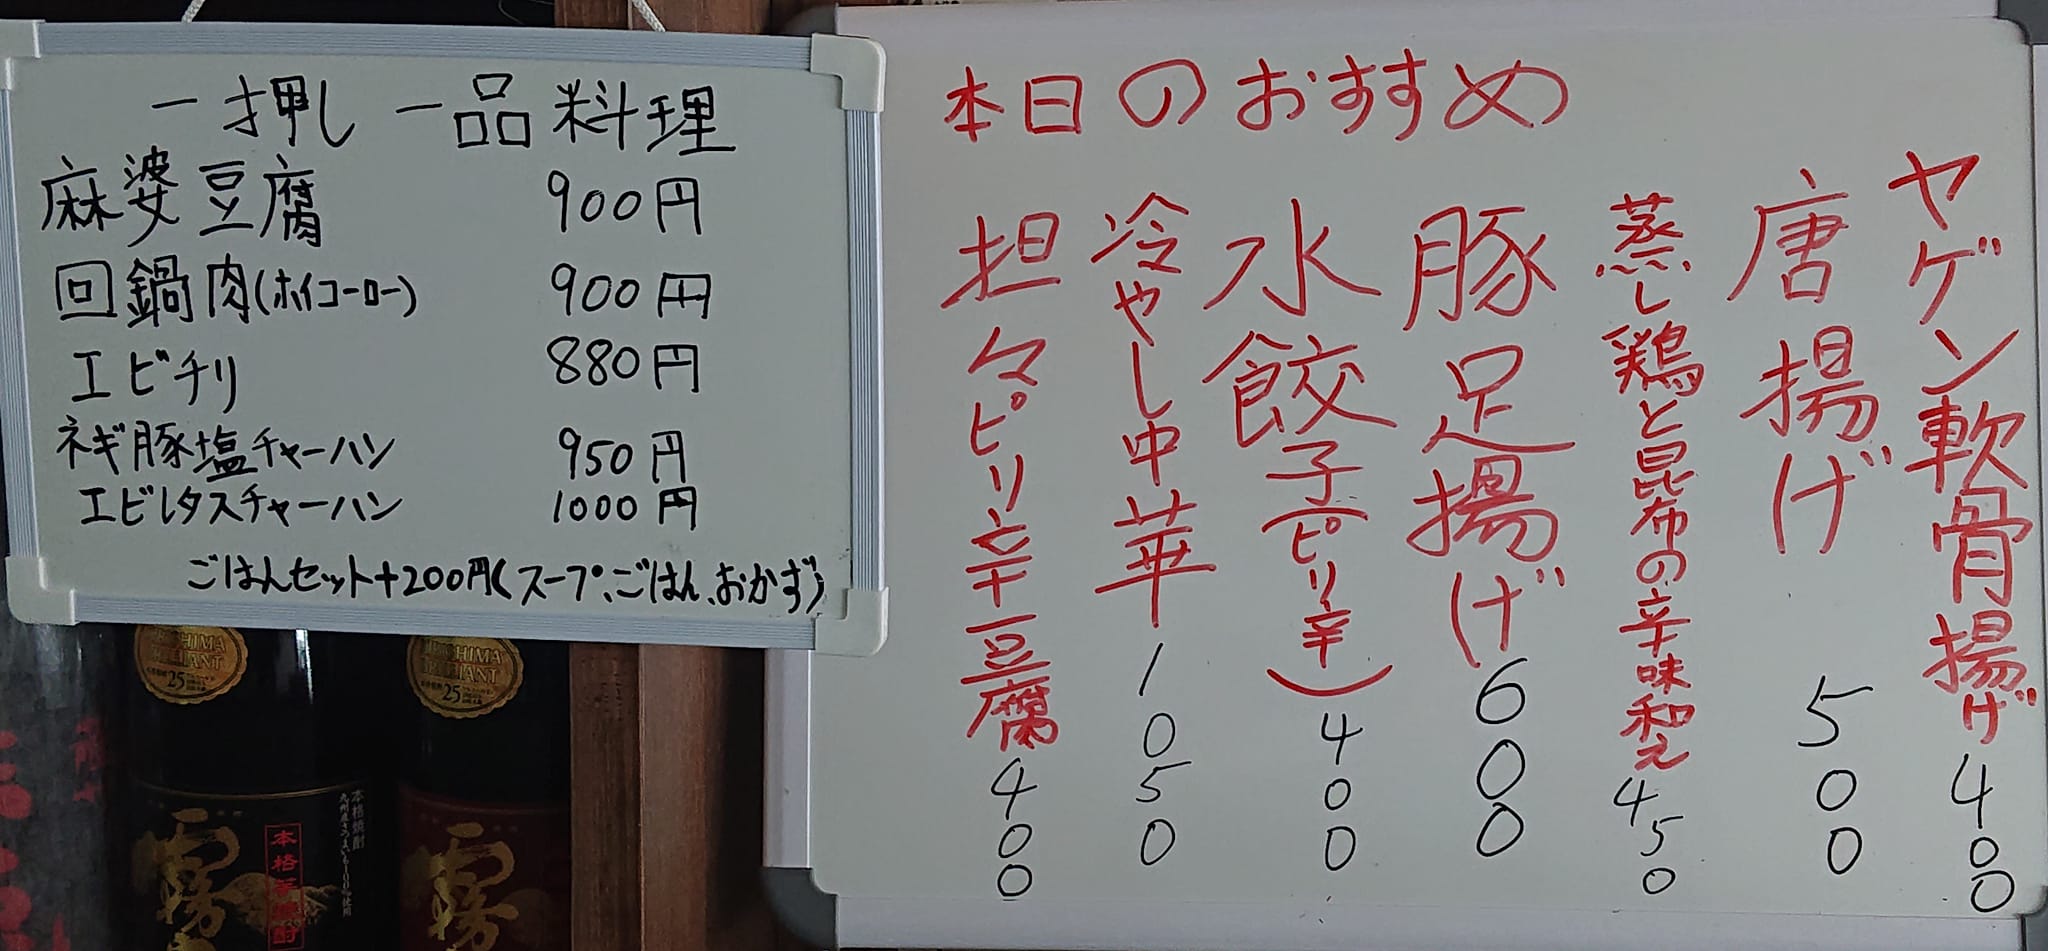 一押し 一品料理
麻婆豆腐 900円
回鍋肉(ホイコーロー) 900円
エビチリ 880円
ネギ豚塩チャーハン 950円
エビレタスチャーハン 1000円
ごはんセット+200円(スープ、ごはん、おかず)
本日のおすすめ
ヤゲン軟骨揚げ 400
唐揚げ 500
蒸し鶏と昆布の辛味和え 450
豚足揚げ 600
水餃子(ピリ辛) 400
冷やし中華 1050
担々ピリ辛豆腐 400
25
25
本格焼酎
九州産さつまいも100%使用
本格芋焼酎
霧
霧